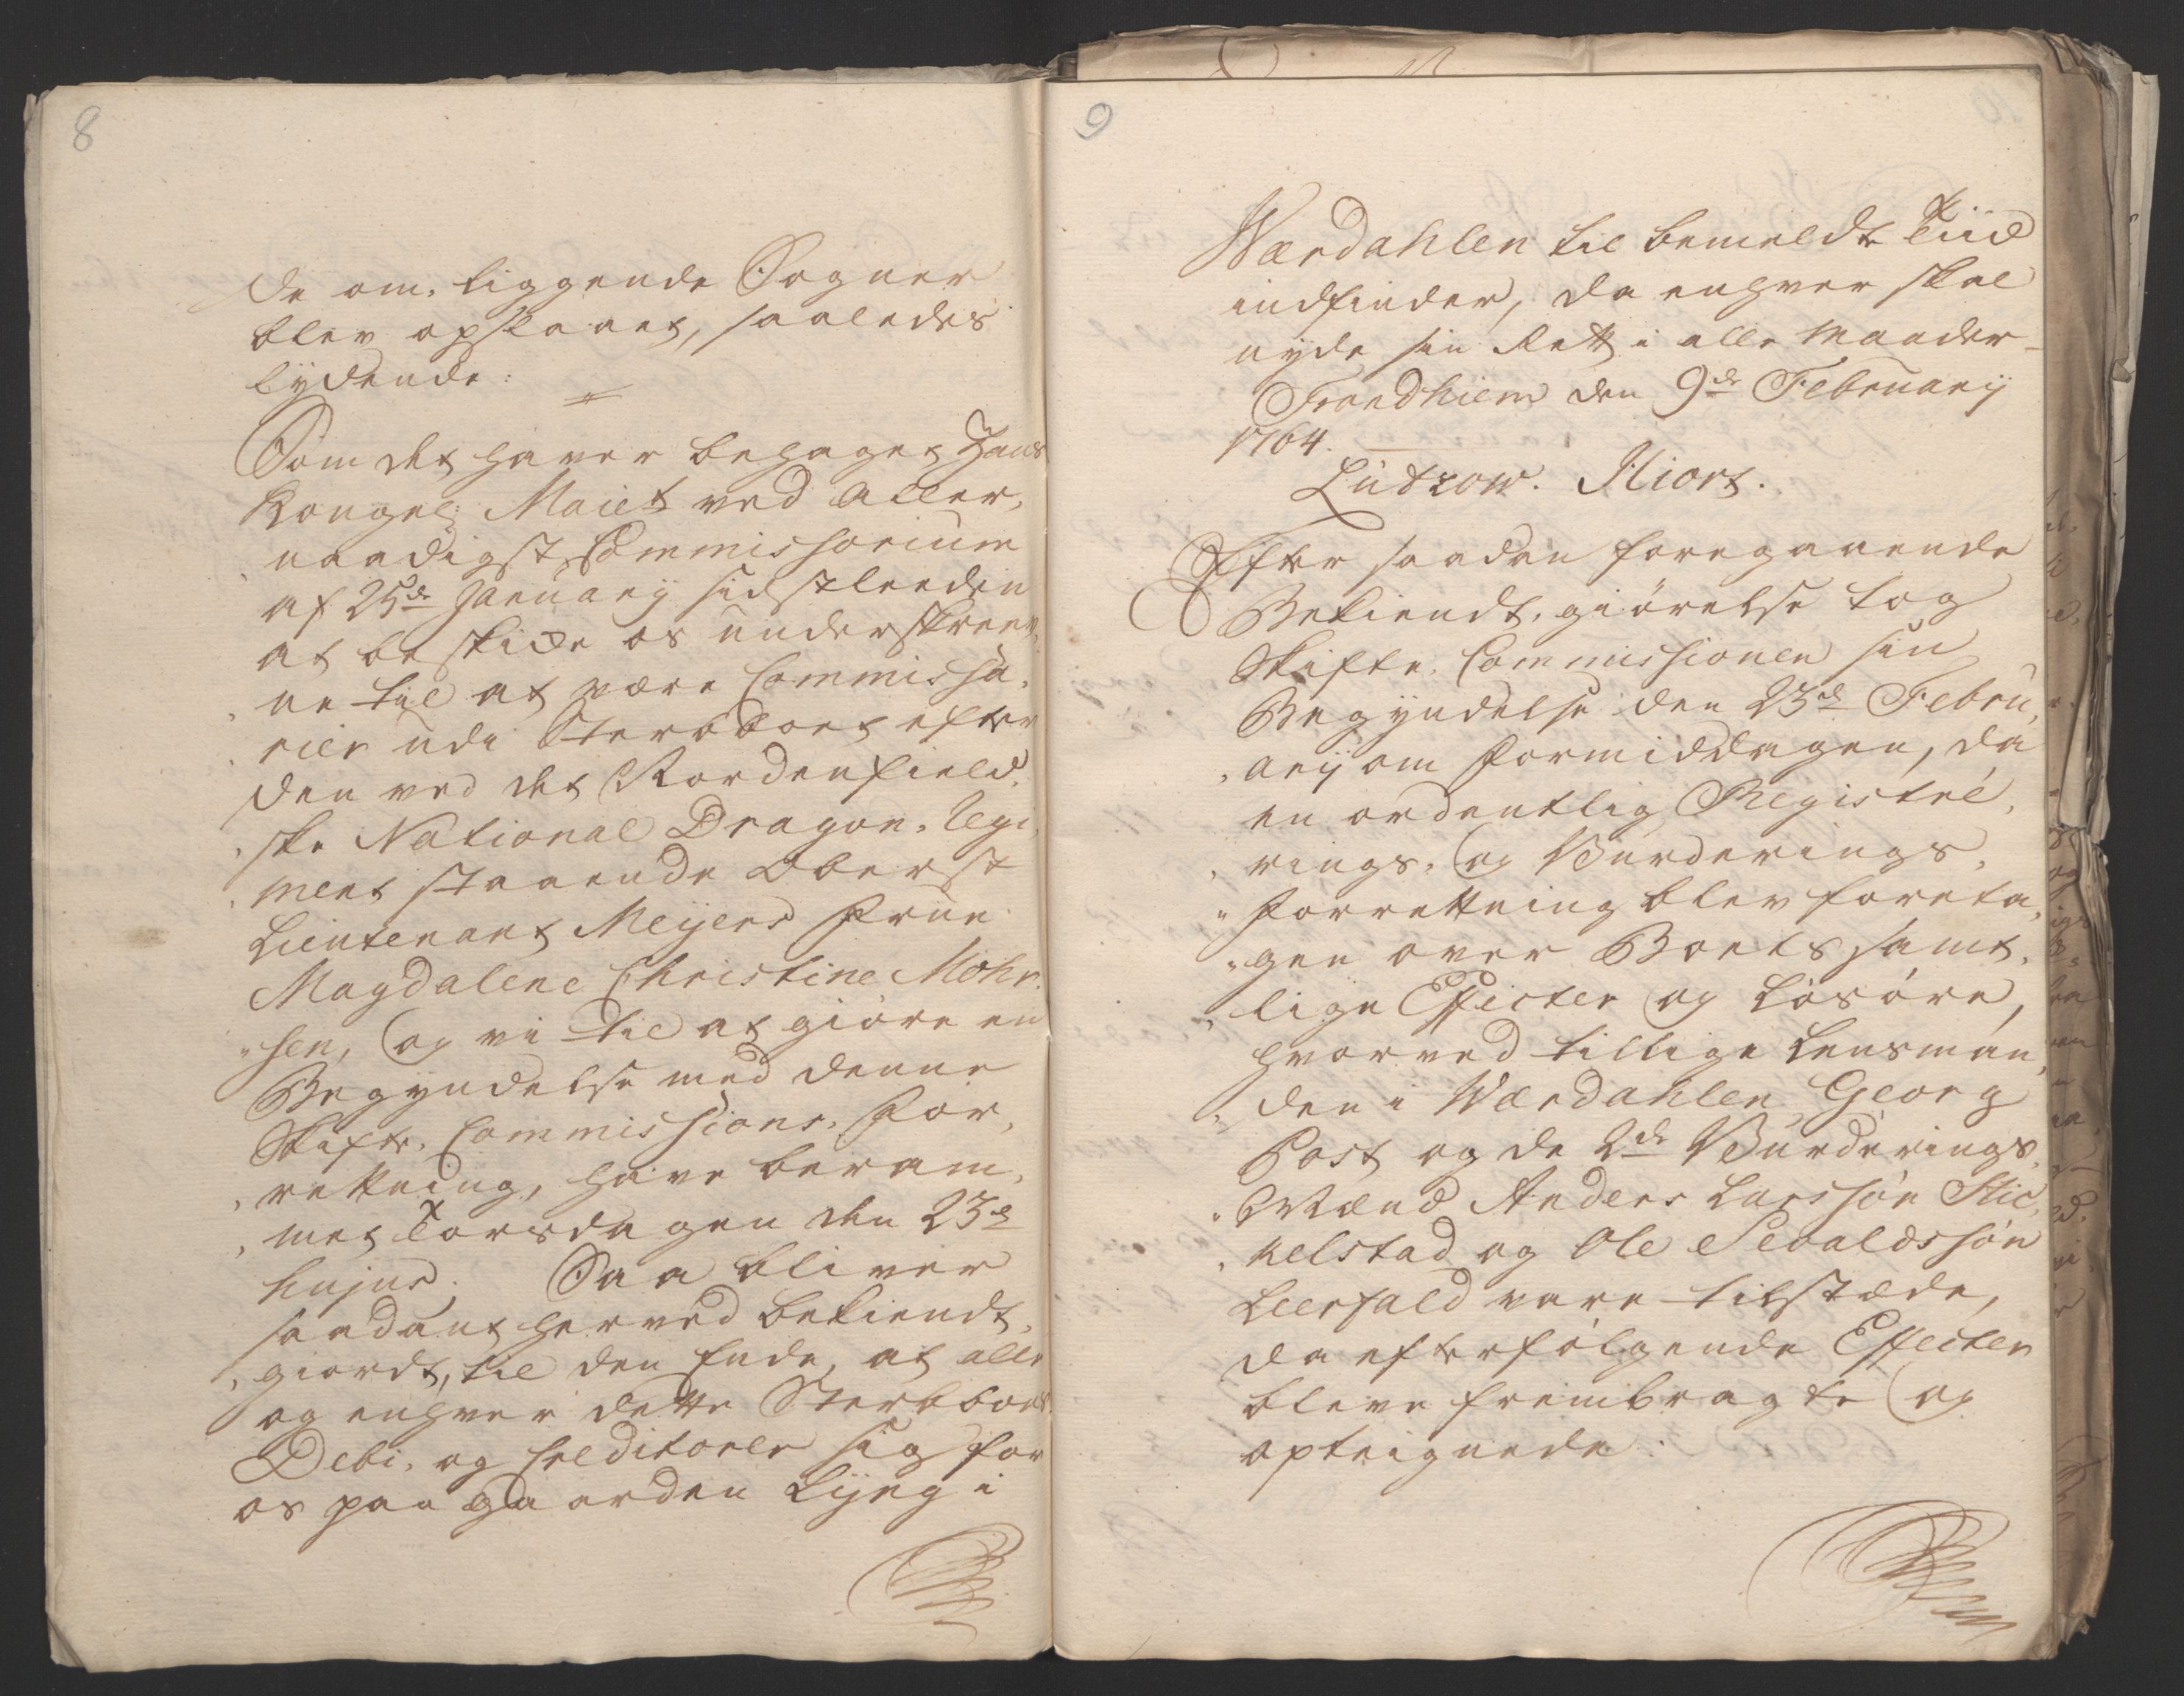 8
de om, liggende Sogner
blev opslaaet, saaledes
lydende:
Som det haver behaget Hans
Kongel: Maiet ved aller,
naadigst Commissorium
af 25de January sidstleeden
at beskike os underskreev,
ne til at være Commissa,
rier udi Sterbboet efter
den ved det Nordenfield,
ske National Dragon, Regi,
ment staaende Oberst
Lieutenant Meyers Frue
Magdalene Christine Mohr,
sen, og vi til at giøre en
Begyndelse med denne
Skifte, Commissions, For,
rettning, have beram,
met Torsdagen den 23de
hujus. Saa bliver
saadant herved bekiendt,
giordt, til den Ende, at alle
og enhver dette Sterbboes
Debi, og Creditorer sig for
os paa Gaarden Lyng i
9
Værdahlen til bemeldte Tiid
indfinder, da enhver skal
nyde sin Rett i alle Maader
Trondhiem den 9de February
1764.
Lützow. Hiort.
Efter saadan foregaaende
Bekiendt, giørelse tog
Skifte, Commissionen sin
Begyndelse den 23de Febru,
ary om Formiddagen, da
en ordentlig Registré,
rings, og Vurderings,
Forrettning blev foreta,
gen over Boets samt,
lige Effecter og Løsøre,
hvorved tillige Lensman,
den i Værdahlen Georg
Post og de 2de Vurderings,
Mænd Anders Larssøn Stic,
kelstad og Ole Sevaldssøn
Leerfald vare tilstæde,
da efterfølgende Effecter
bleve frembragte og
opteignede: